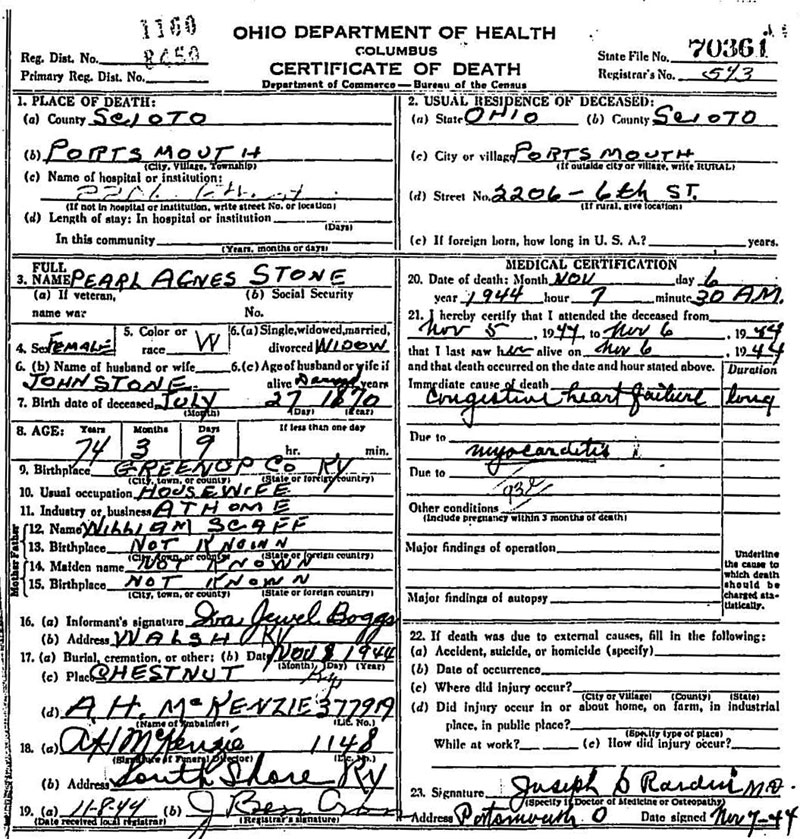 1160
8650
OHIO DEPARTMENT OF HEALTH
COLUMBUS
CERTIFICATE OF DEATH
Department of Commerce — Bureau of the Census
Reg. Dist. No.
Primary Reg. Dist. No.
State File No. 70361
Registrar's No. 543
1. PLACE OF DEATH:
(a) County SCIOTO
(b) PORTSMOUTH
(City, Village, Township)
(c) Name of hospital or institution:
2206
(If not in hospital or institution, write street No. or location)
(d) Length of stay: In hospital or institution
(Days)
In this community
(Years, months or days)
2. USUAL RESIDENCE OF DECEASED:
(a) State OHIO (b) County SCIOTO
(c) City or village PORTSMOUTH
(If outside city or village, write RURAL)
(d) Street No. 2206 - 6th ST.
(If rural, give location)
(e) If foreign born, how long in U. S. A.? years.
3. FULL NAME PEARL AGNES STONE
(a) If veteran, name war
(b) Social Security No.
4. Sex FEMALE
5. Color or race W
6. (a) Single, widowed, married, divorced WIDOW
6. (b) Name of husband or wife JOHN STONE
6. (c) Age of husband or wife if alive years
7. Birth date of deceased JULY 27 1870
(Month) (Day) (Year)
8. AGE: Years 74 Months 3 Days 9 If less than one day hr. min.
9. Birthplace GREENUP CO KY
(City, town, or county) (State or foreign country)
10. Usual occupation HOUSEWIFE
11. Industry or business AT HOME
Mother Father
12. Name WILLIAM SCAFF
13. Birthplace NOT KNOWN
(City, town, or county) (State or foreign country)
14. Maiden name NOT KNOWN
15. Birthplace NOT KNOWN
(City, town, or county) (State or foreign country)
16. (a) Informant's signature Iva Jewel Boggs
(b) Address WALSH KY
17. (a) Burial, cremation, or other: (b) Date Nov 8 1944
(Month) (Day) (Year)
(c) Place CHESTNUT Ky
(d) A. H. McKENZIE 3779A
(Name of Embalmer) (Lic. No.)
18. (a) AH McKenzie 1148
(Signature of Funeral Director) (Lic. No.)
(b) Address South Shore Ky
19. (a) 11-8-44 (b) J
(Date received local registrar) (Registrar's signature)
MEDICAL CERTIFICATION
20. Date of death: Month NOV day 6
year 1944 hour 7 minute 30 AM.
21. I hereby certify that I attended the deceased from
Nov 5, 1944, to Nov 6, 1944
that I last saw her alive on Nov 6, 1944
and that death occurred on the date and hour stated above.
Duration
Immediate cause of death
Congestive heart failure long
Due to
myocarditis
Due to
Other conditions
(Include pregnancy within 3 months of death)
Major findings of operation
Major findings of autopsy
Underline the cause to which death should be charged statistically.
22. If death was due to external causes, fill in the following:
(a) Accident, suicide, or homicide (specify)
(b) Date of occurrence
(c) Where did injury occur?
(City or Village) (County) (State)
(d) Did injury occur in or about home, on farm, in industrial
place, in public place?
(Specify type of place)
While at work? (e) How did injury occur?
23. Signature Joseph D Rardin M.D.
(Specify if Doctor of Medicine or Osteopathy)
Address Portsmouth O Date signed Nov 7-44